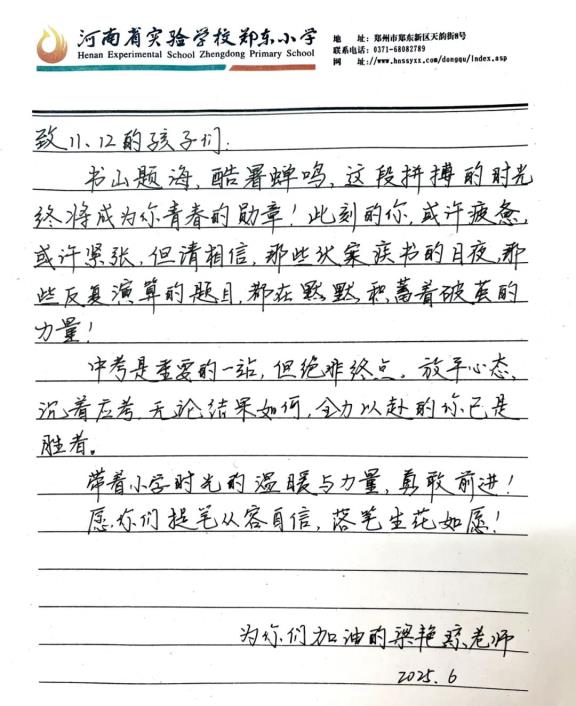 河南省实验学校郑东小学
Henan Experimental School Zhengdong Primary School
地 址：郑州市郑东新区天韵街8号
联系电话：0371-68082789
网 址：http://www.hnssyxx.com/dongqu/index.asp
致11、12的孩子们：
书山题海，酷暑蝉鸣，这段拼搏的时光
终将成为你青春的勋章！此刻的你，或许疲惫，
或许紧张，但请相信，那些伏案疾书的日夜，那
些反复演算的题目，都在默默积蓄着破茧的
力量！
中考是重要的一站，但绝非终点。放平心态、
沉着应考，无论结果如何，全力以赴的你已是
胜者。
带着小学时光的温暖与力量，勇敢前进！
愿你们提笔从容自信，落笔生花如愿！
为你们加油的梁艳琼老师
2025.6